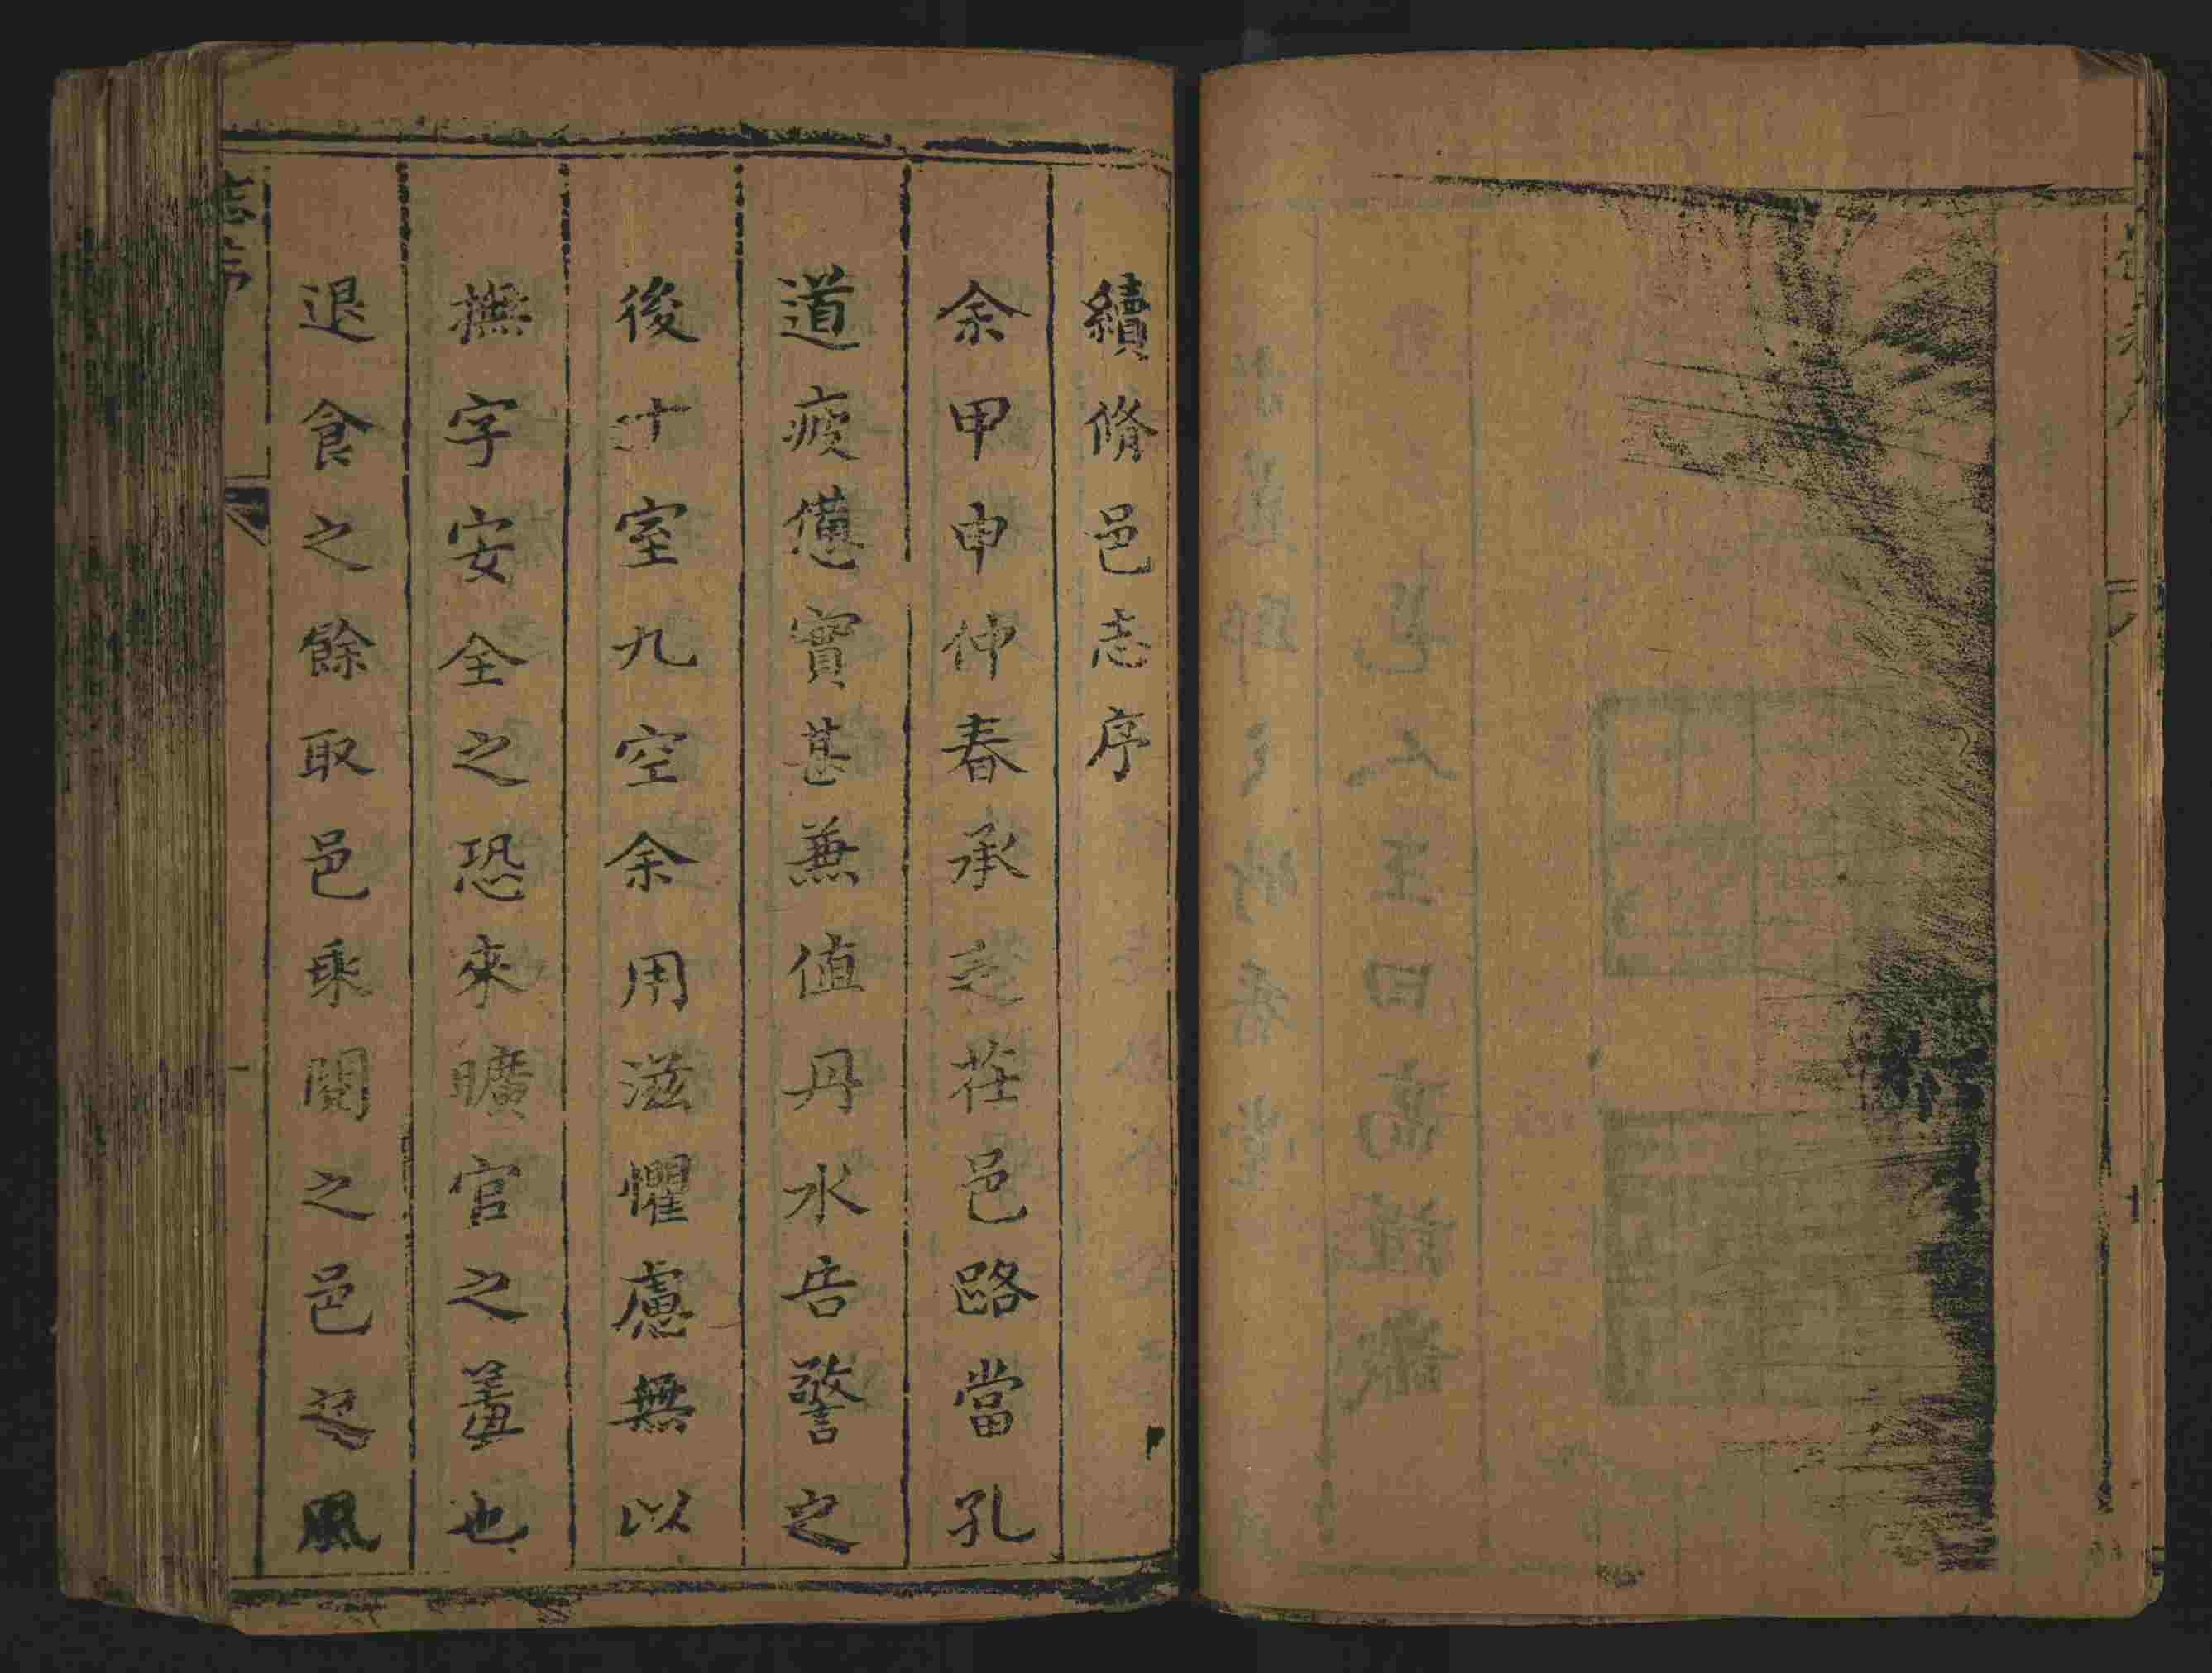 續脩邑志序
余甲申仲春承乏茌邑路當孔
道疲憊實甚兼值丹水告警之
後十室九空余用滋懼慮無以
撫字安全之恐來曠官之羞也
退食之餘取邑乘閱之邑之風
志序